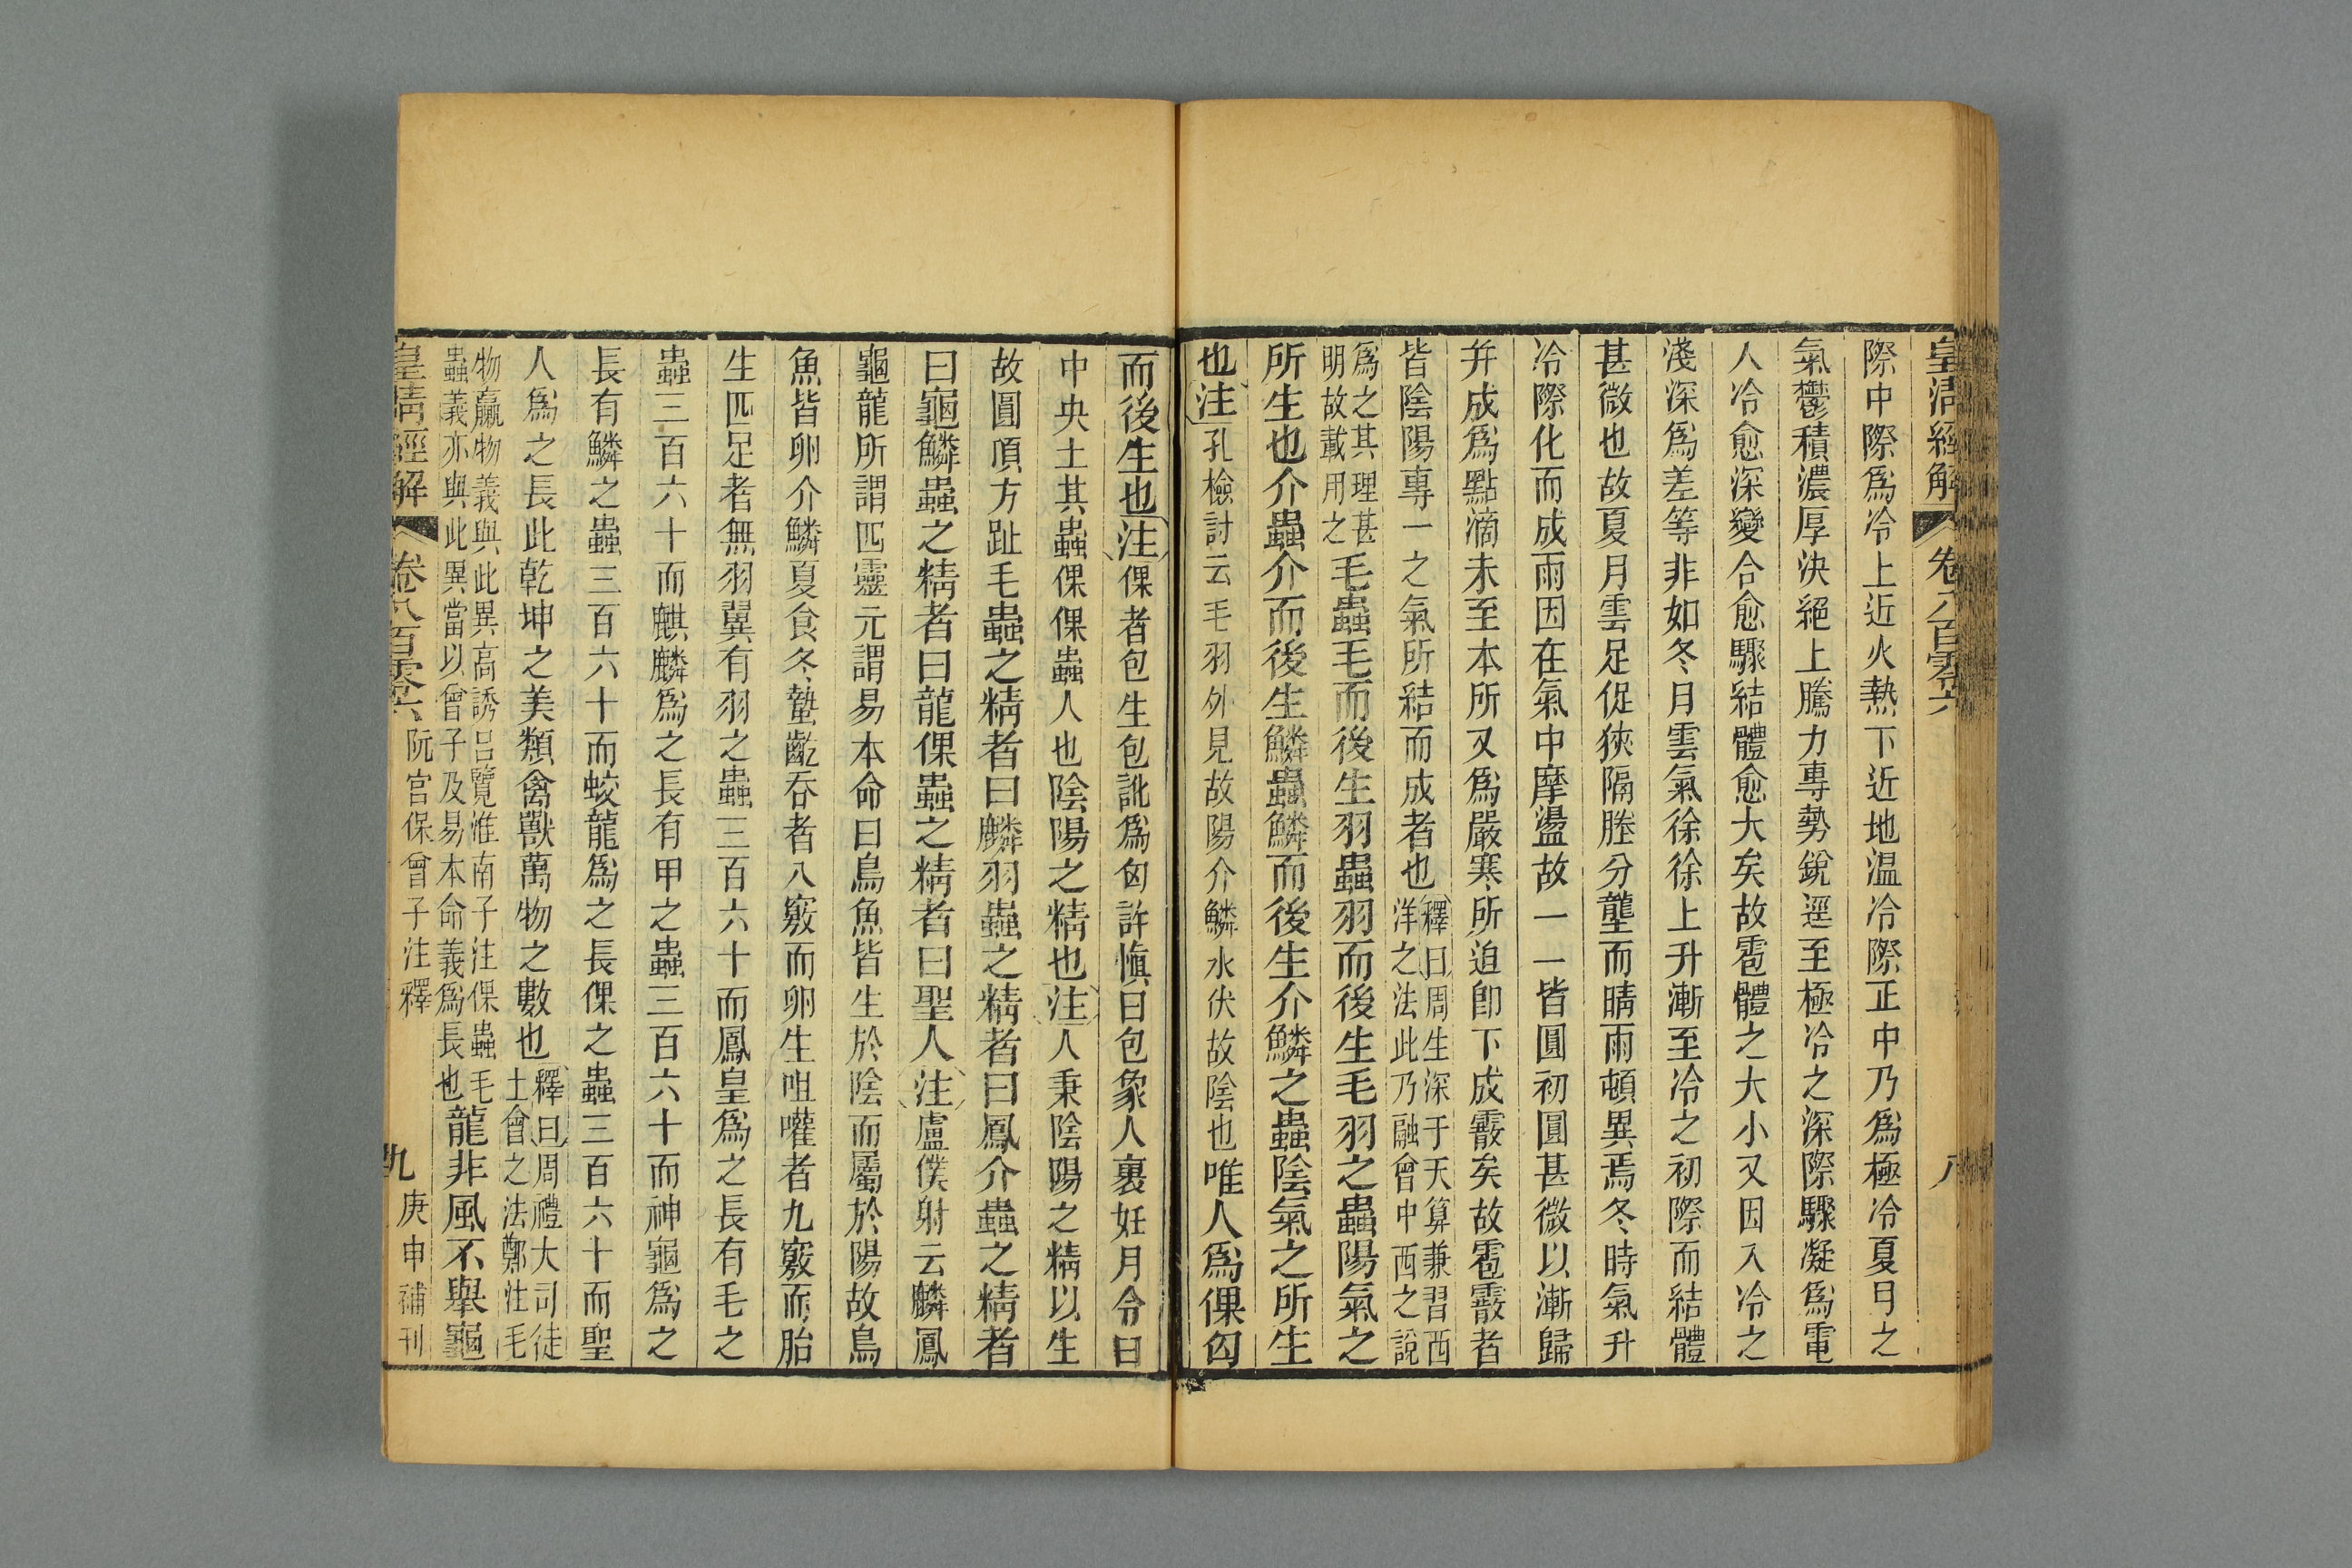 皇清經解 卷八百零六 八
際中際爲冷上近火熱下近地温冷際正中乃爲極冷夏日之
氣鬱積濃厚決絕上騰力專勢銳逕至極冷之深際驟凝爲電
人冷愈深變合愈驟結體愈大矣故雹體之大小又因入冷之
淺深爲差等非如冬月雲氣徐徐上升漸至冷之初際而結體
甚微也故夏月雲足促狹隔塍分壟而晴雨頓異焉冬時氣升
冷際化而成雨因在氣中摩盪故一一皆圓初圓甚微以漸歸
幷成爲點滴未至本所又爲嚴寒所迫卽下成霰矣故雹霰者
皆陰陽專一之氣所結而成者也釋曰周生深于天算兼習西
洋之法此乃融會中西之說
爲之其理甚
明故載用之毛蟲毛而後生羽蟲羽而後生毛羽之蟲陽氣之
所生也介蟲介而後生鱗蟲鱗而後生介鱗之蟲陰氣之所生
也注孔檢討云毛羽外見故陽介鱗水伏故陰也唯人爲倮匈
而後生也注倮者包生包訛爲匈許愼曰包象人裹妊月令曰
中央土其蟲倮倮蟲人也陰陽之精也注人秉陰陽之精以生
故圓頂方趾毛蟲之精者曰麟羽蟲之精者曰鳳介蟲之精者
曰龜鱗蟲之精者曰龍倮蟲之精者曰聖人注盧僕射云麟鳳
龜龍所謂四靈元謂易本命曰鳥魚皆生於陰而屬於陽故鳥
魚皆卵介鱗夏食冬蟄齕吞者八竅而卵生咀嚾者九竅而胎
生四足者無羽翼有羽之蟲三百六十而鳳皇爲之長有毛之
蟲三百六十而麒麟爲之長有甲之蟲三百六十而神龜爲之
長有鱗之蟲三百六十而蛟龍爲之長倮之蟲三百六十而聖
人爲之長此乾坤之美類禽獸萬物之數也釋曰周禮大司徒
土會之法鄭注毛
物蠃物義與此異高誘呂覽淮南子注倮蟲毛
蟲義亦與此異當以曾子及易本命義爲長也龍非風不舉龜
皇清經解 卷八百零六 阮宮保曾子注釋 九 庚申補刊